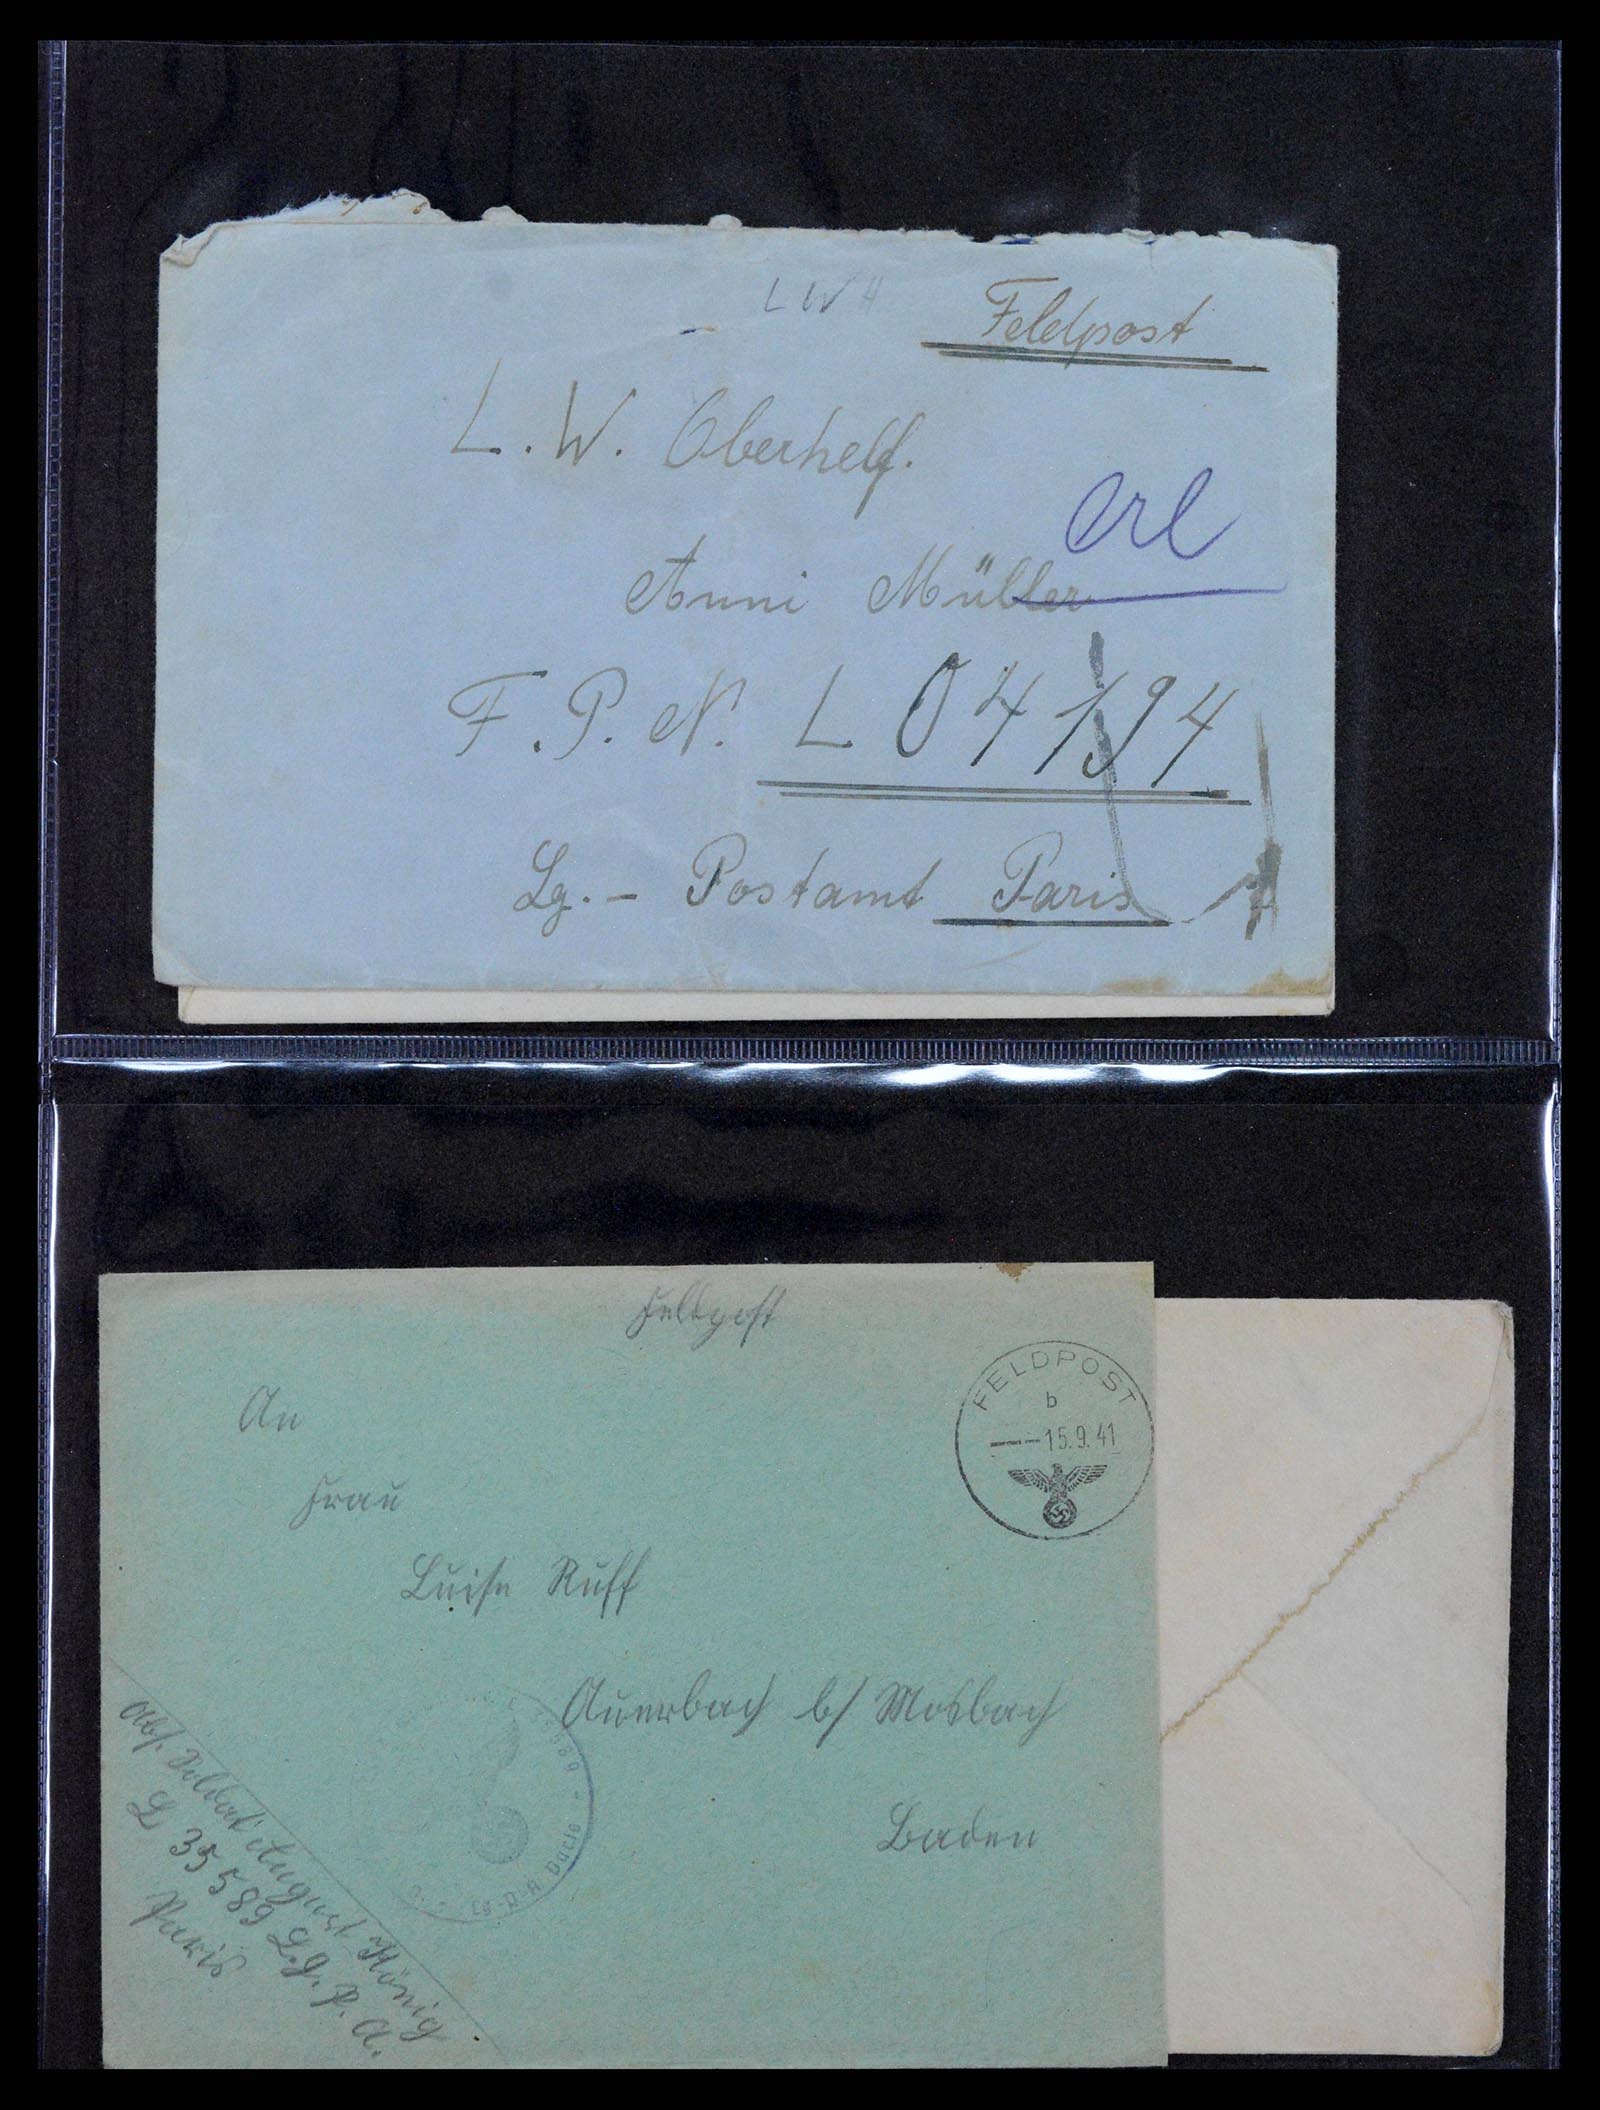 L W H
Feldpost
L. W. Oberhelf.
erl
Anni Müller
F. P. N. L 04194
Lg. - Postamt Paris
Feldpost
FELDPOST
b
15.9.41
An
Frau
Luise Ruff
Auerbach b/ Mosbach
Baden
Abs. Soldat August König
L 35589 L.g. P. A.
Paris
35589
Lg-P-A Paris